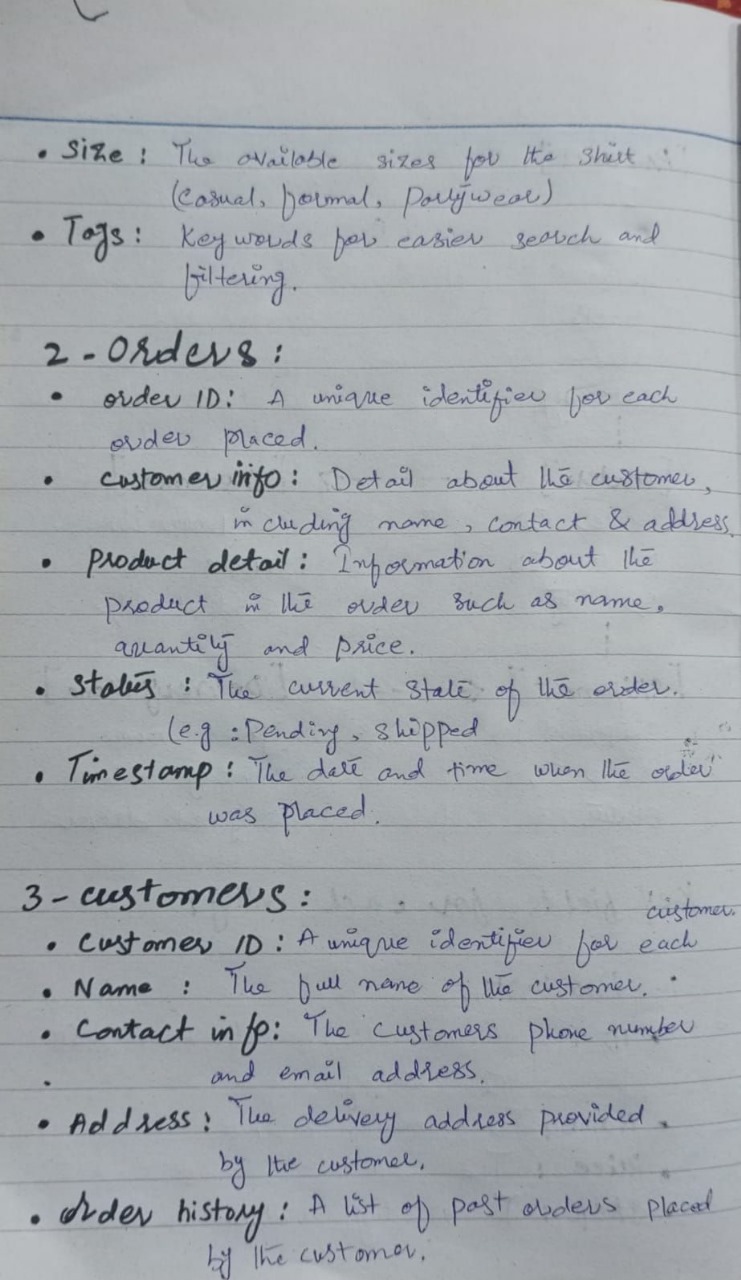 • Size : The available sizes for the Shirt :
(Casual, formal, Partywear)
• Tags : Keywords for easier search and
filtering.
2 - Orders :
• order ID : A unique identifier for each
order placed.
• customer info : Detail about the customer,
including name, contact & address.
• Product detail : Information about the
product in the order such as name,
quantity and price.
• Status : The current state of the order.
(e.g : Pending, shipped
• Timestamp : The date and time when the order
was placed.
3 - customers :
customer.
• Customer ID : A unique identifier for each
• Name : The full name of the customer.
• Contact info : The customers phone number
and email address.
• Address : The delivery address provided.
by the customer.
• order history : A list of past orders placed
by the customer.